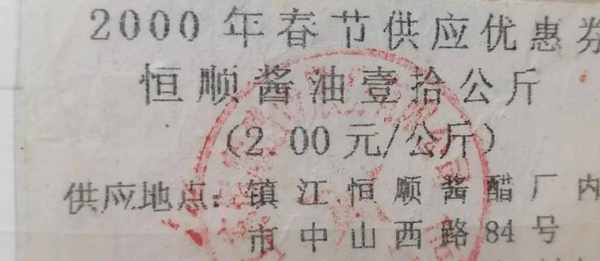 2000年春节供应优惠券
恒顺酱油壹拾公斤
(2.00元/公斤)
供应地点:镇江恒顺酱醋厂内
市中山西路84号